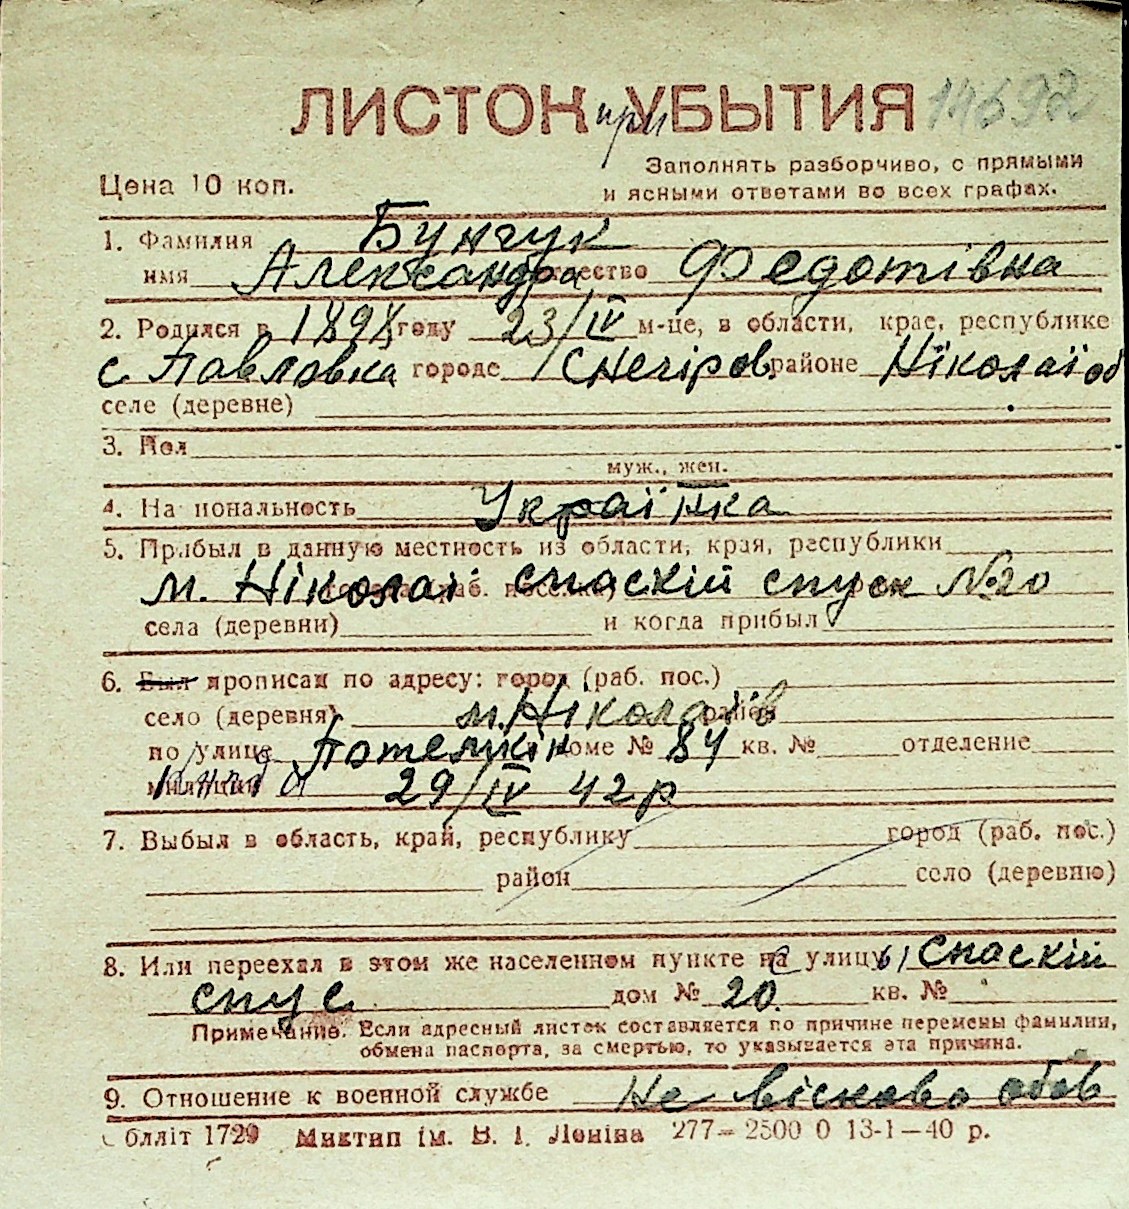 ЛИСТОК при УБЫТИЯ 14692
Заполнять разборчиво, с прямыми
Цена 10 коп. и ясными ответами во всех графах.
1. Фамилия Бунчук
имя Александра отчество Федотівна
2. Родился в 1898 году 23/IV м-це, в области, крае, республике
с. Павловка городе Снегіров. районе Ніколаїв об
селе (деревне)
3. Пол
муж., жен.
4. Национальность Українка
5. Прибыл в данную местность из области, края, республики
м. Ніколаї спаскій спуск №20
села (деревни) и когда прибыл
6. Был прописан по адресу: город (раб. пос.)
село (деревня) м. Ніколаїв район
по улице Потемкін доме № 84 кв. № отделение
милиции 29/IV 42 р
7. Выбыл в область, край, республику город (раб. пос.)
район село (деревню)
8. Или переехал в этом же населенном пункте на улицу Спаскій
спус дом № 20. кв. №
Примечание. Если адресный листок составляется по причине перемены фамилии,
обмена паспорта, за смертью, то указывается эта причина.
9. Отношение к военной службе не вісково обов
блліт 1729 Миктип ім. В. І. Леніна 277–2500 0 13-1–40 р.